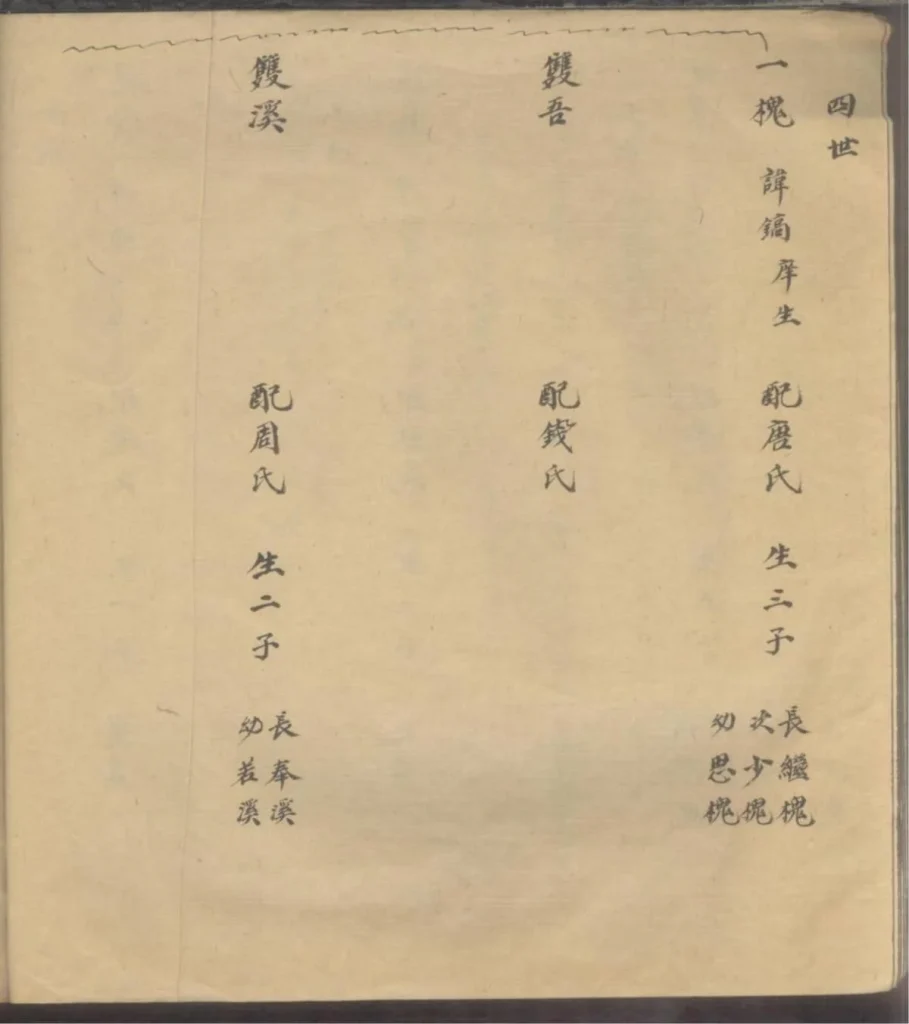 四世
一槐 諱鎬 庠生 配唐氏 生三子 長繼槐
次少槐
幼思槐
雙吾 配錢氏
雙溪 配周氏 生二子 長奉溪
幼若溪